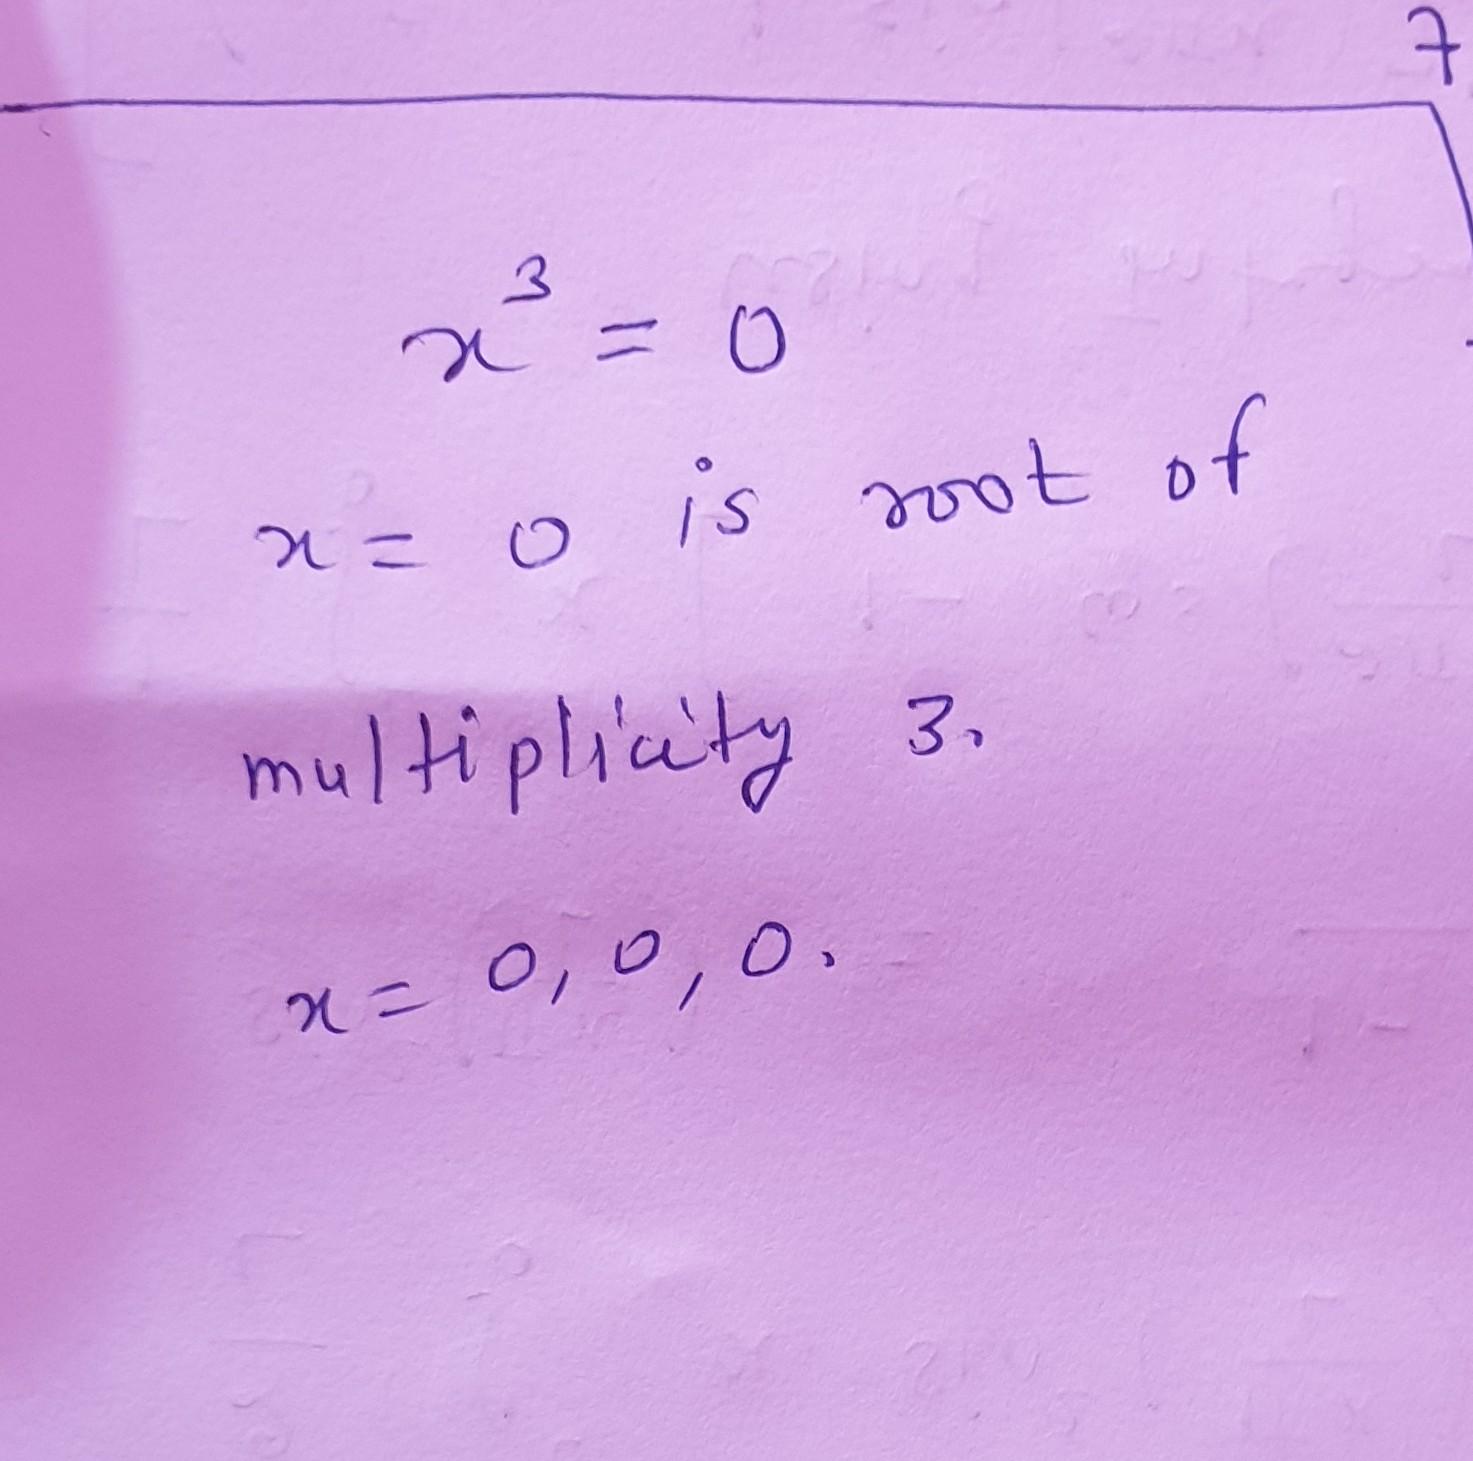 7
x³ = 0
x = 0 is root of
multiplicity 3.
x = 0, 0, 0.